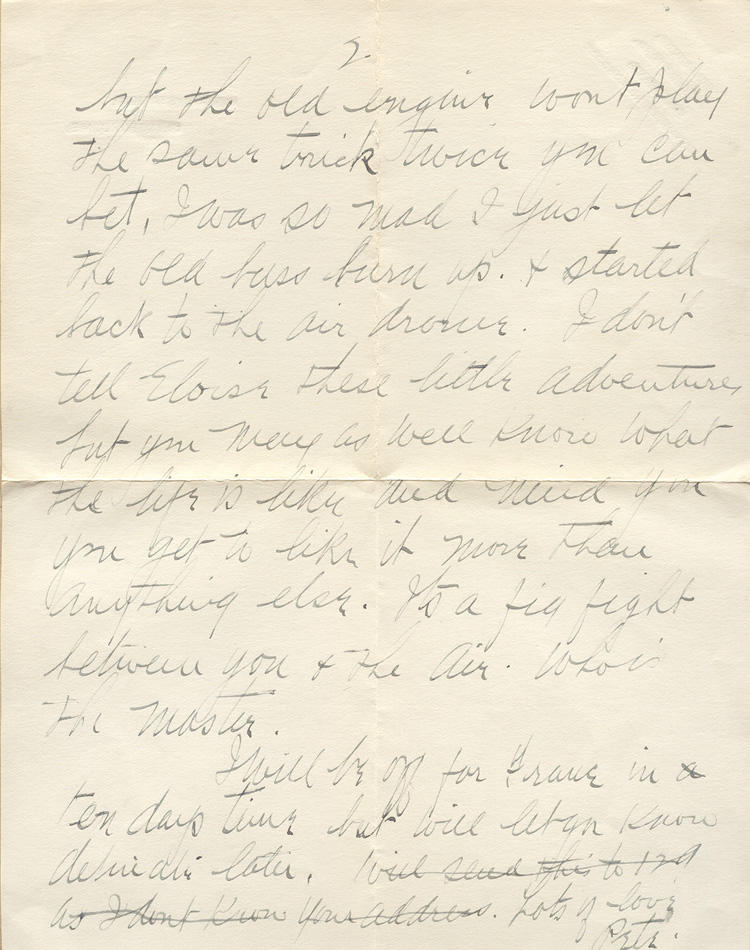 2
but the old engine wont play
the same trick twice you can
bet, I was so mad I just let
the old buss burn up. & started
back to the air drome. I don't
tell Eloise these little adventures
but you may as well know what
the life is like and mind you
you get to like it more than
anything else. It's a fig fight
between you & the air. Who is
the master.
I will be off for France in a
ten days time but will let you know
definate later. Will send this to
as I dont know your address. Lots of love
Pete.